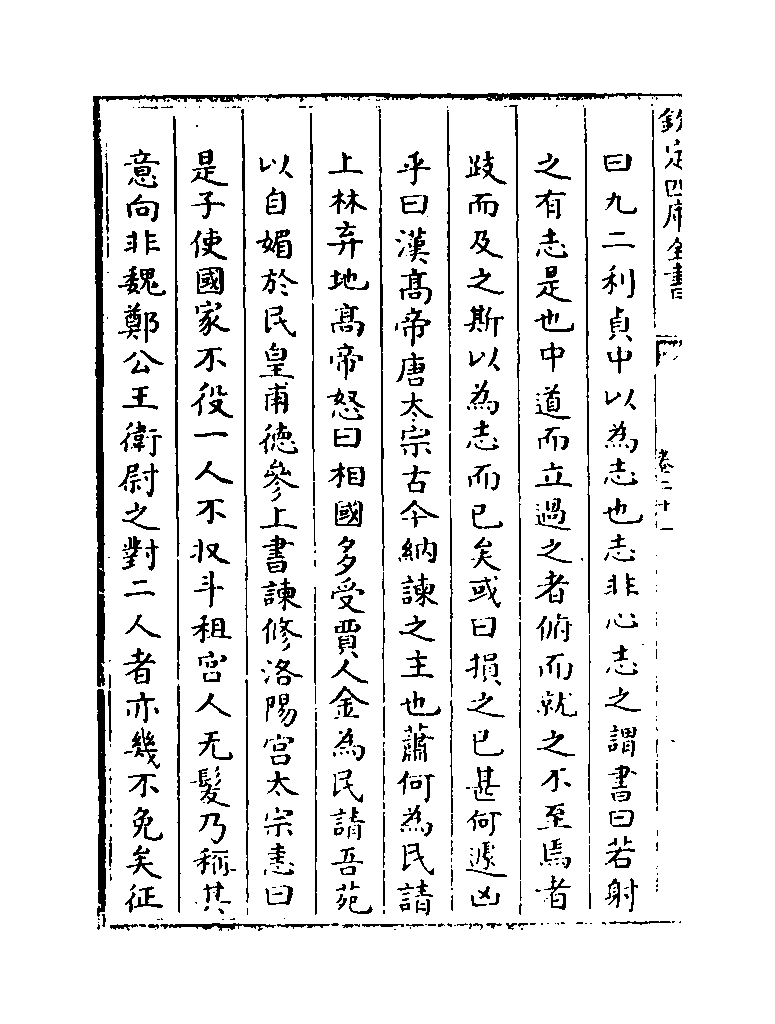 欽定四庫全書
卷二十一
曰九二利貞中以為志也志非心志之謂書曰若射
之有志是也中道而立過之者俯而就之不至焉者
跂而及之斯以為志而已矣或曰損之已甚何遽凶
乎曰漢髙帝唐太宗古今納諫之主也蕭何為民請
上林弃地髙帝怒曰相國多受賈人金為民請吾苑
以自媚於民皇甫徳參上書諫修洛陽宫太宗恚曰
是子使國家不役一人不収斗租宫人无髮乃稱其
意向非魏鄭公王衛尉之對二人者亦幾不免矣征